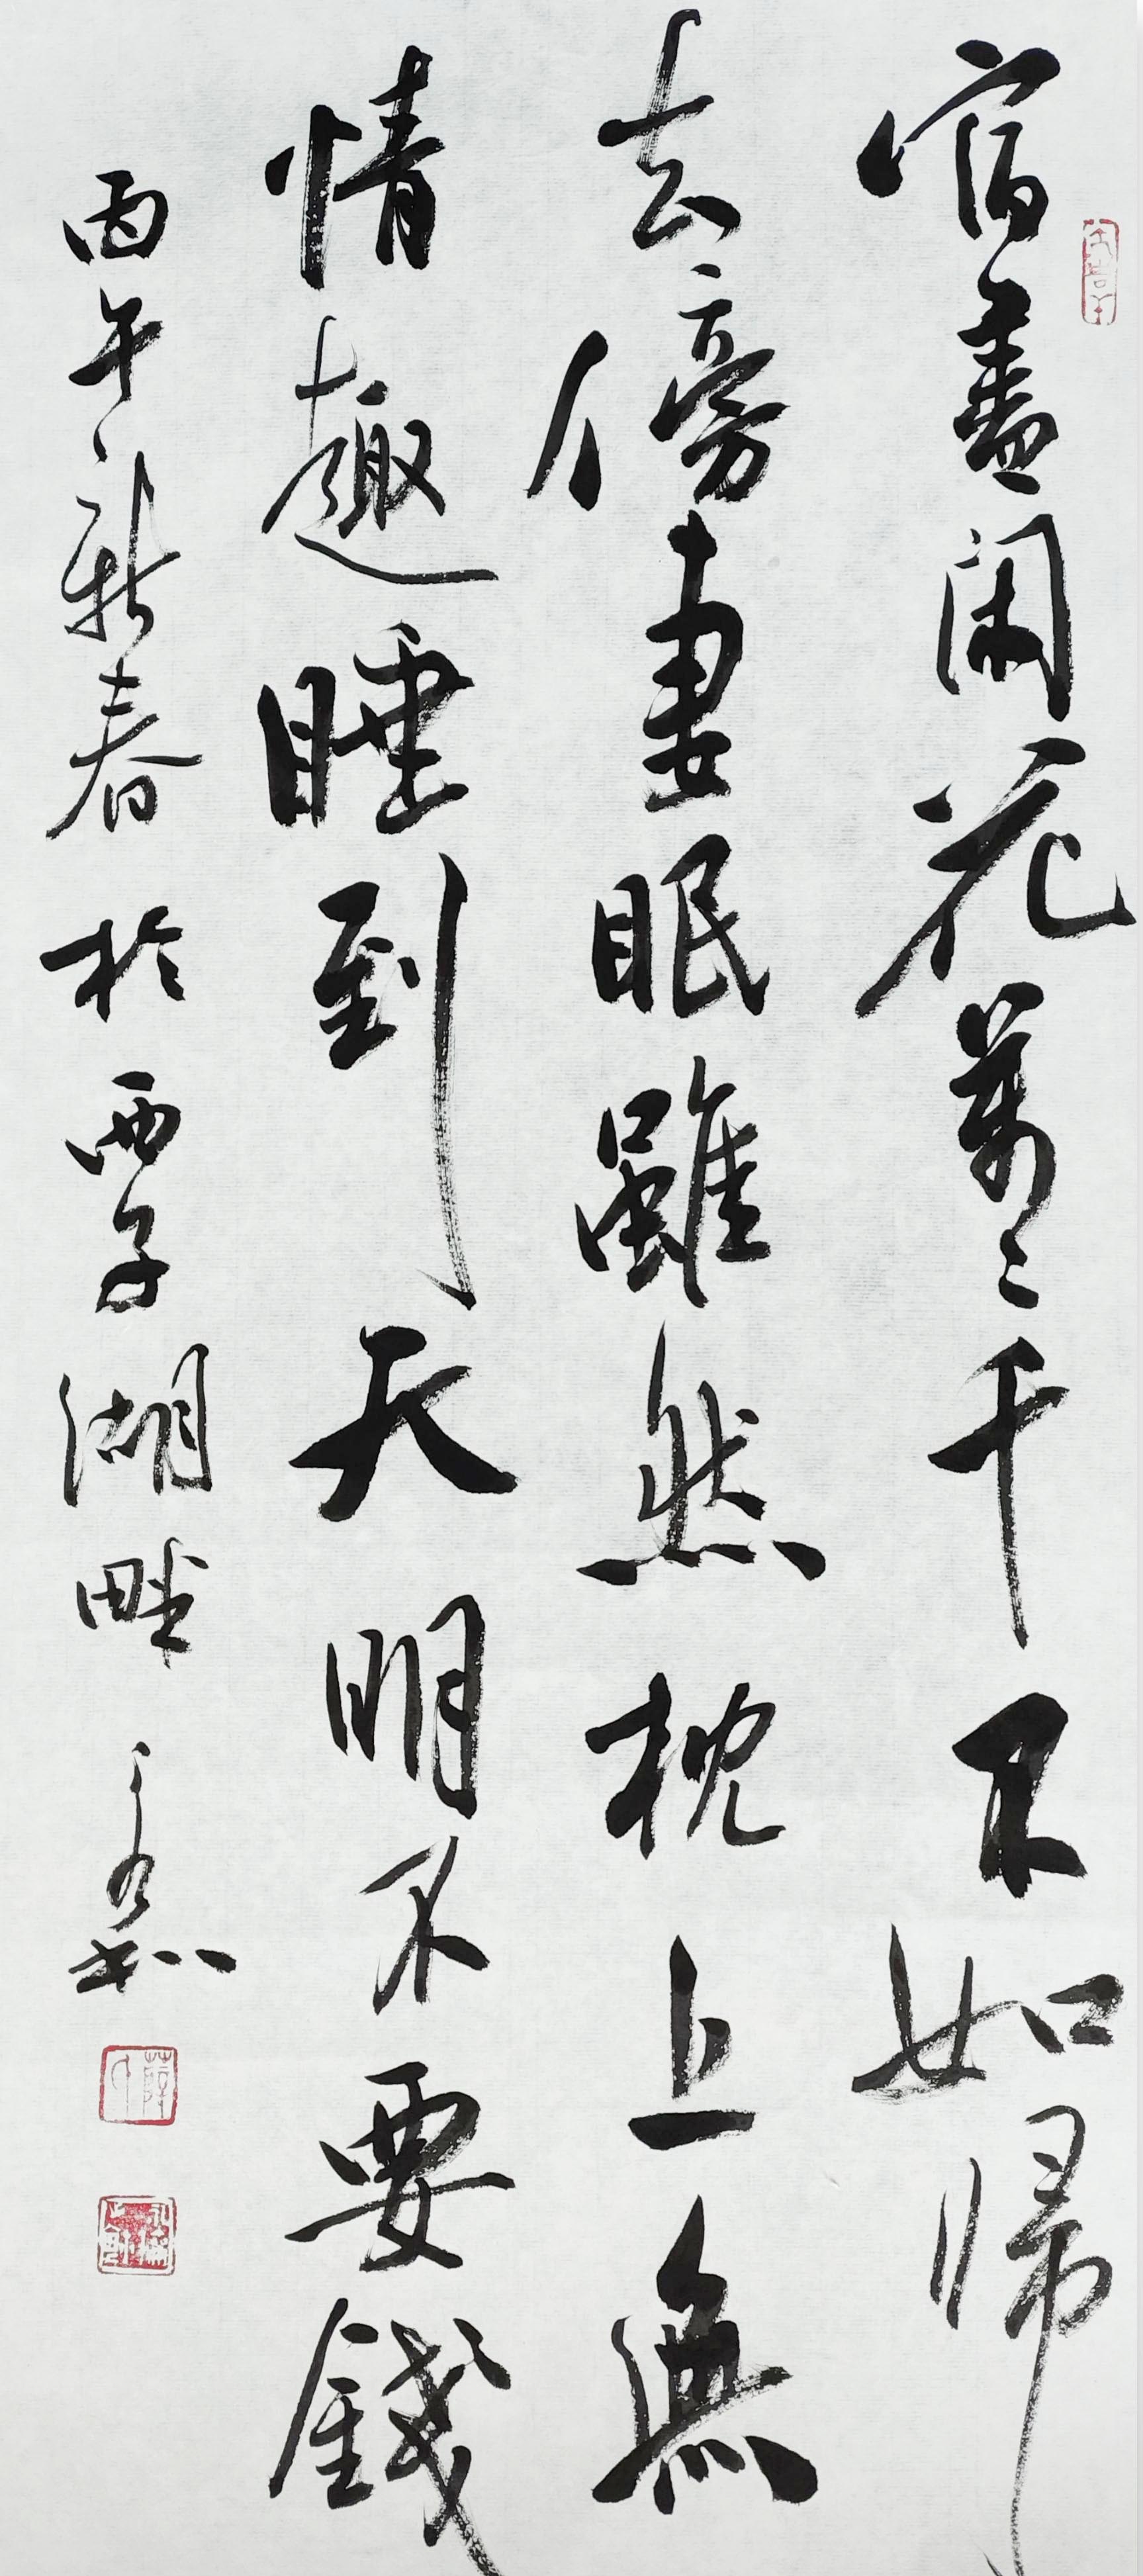 宿盡閑花萬〻千不如歸
去傍妻眠雖然枕上無
情趣睡到天明不要錢
丙午新春於西子湖畔